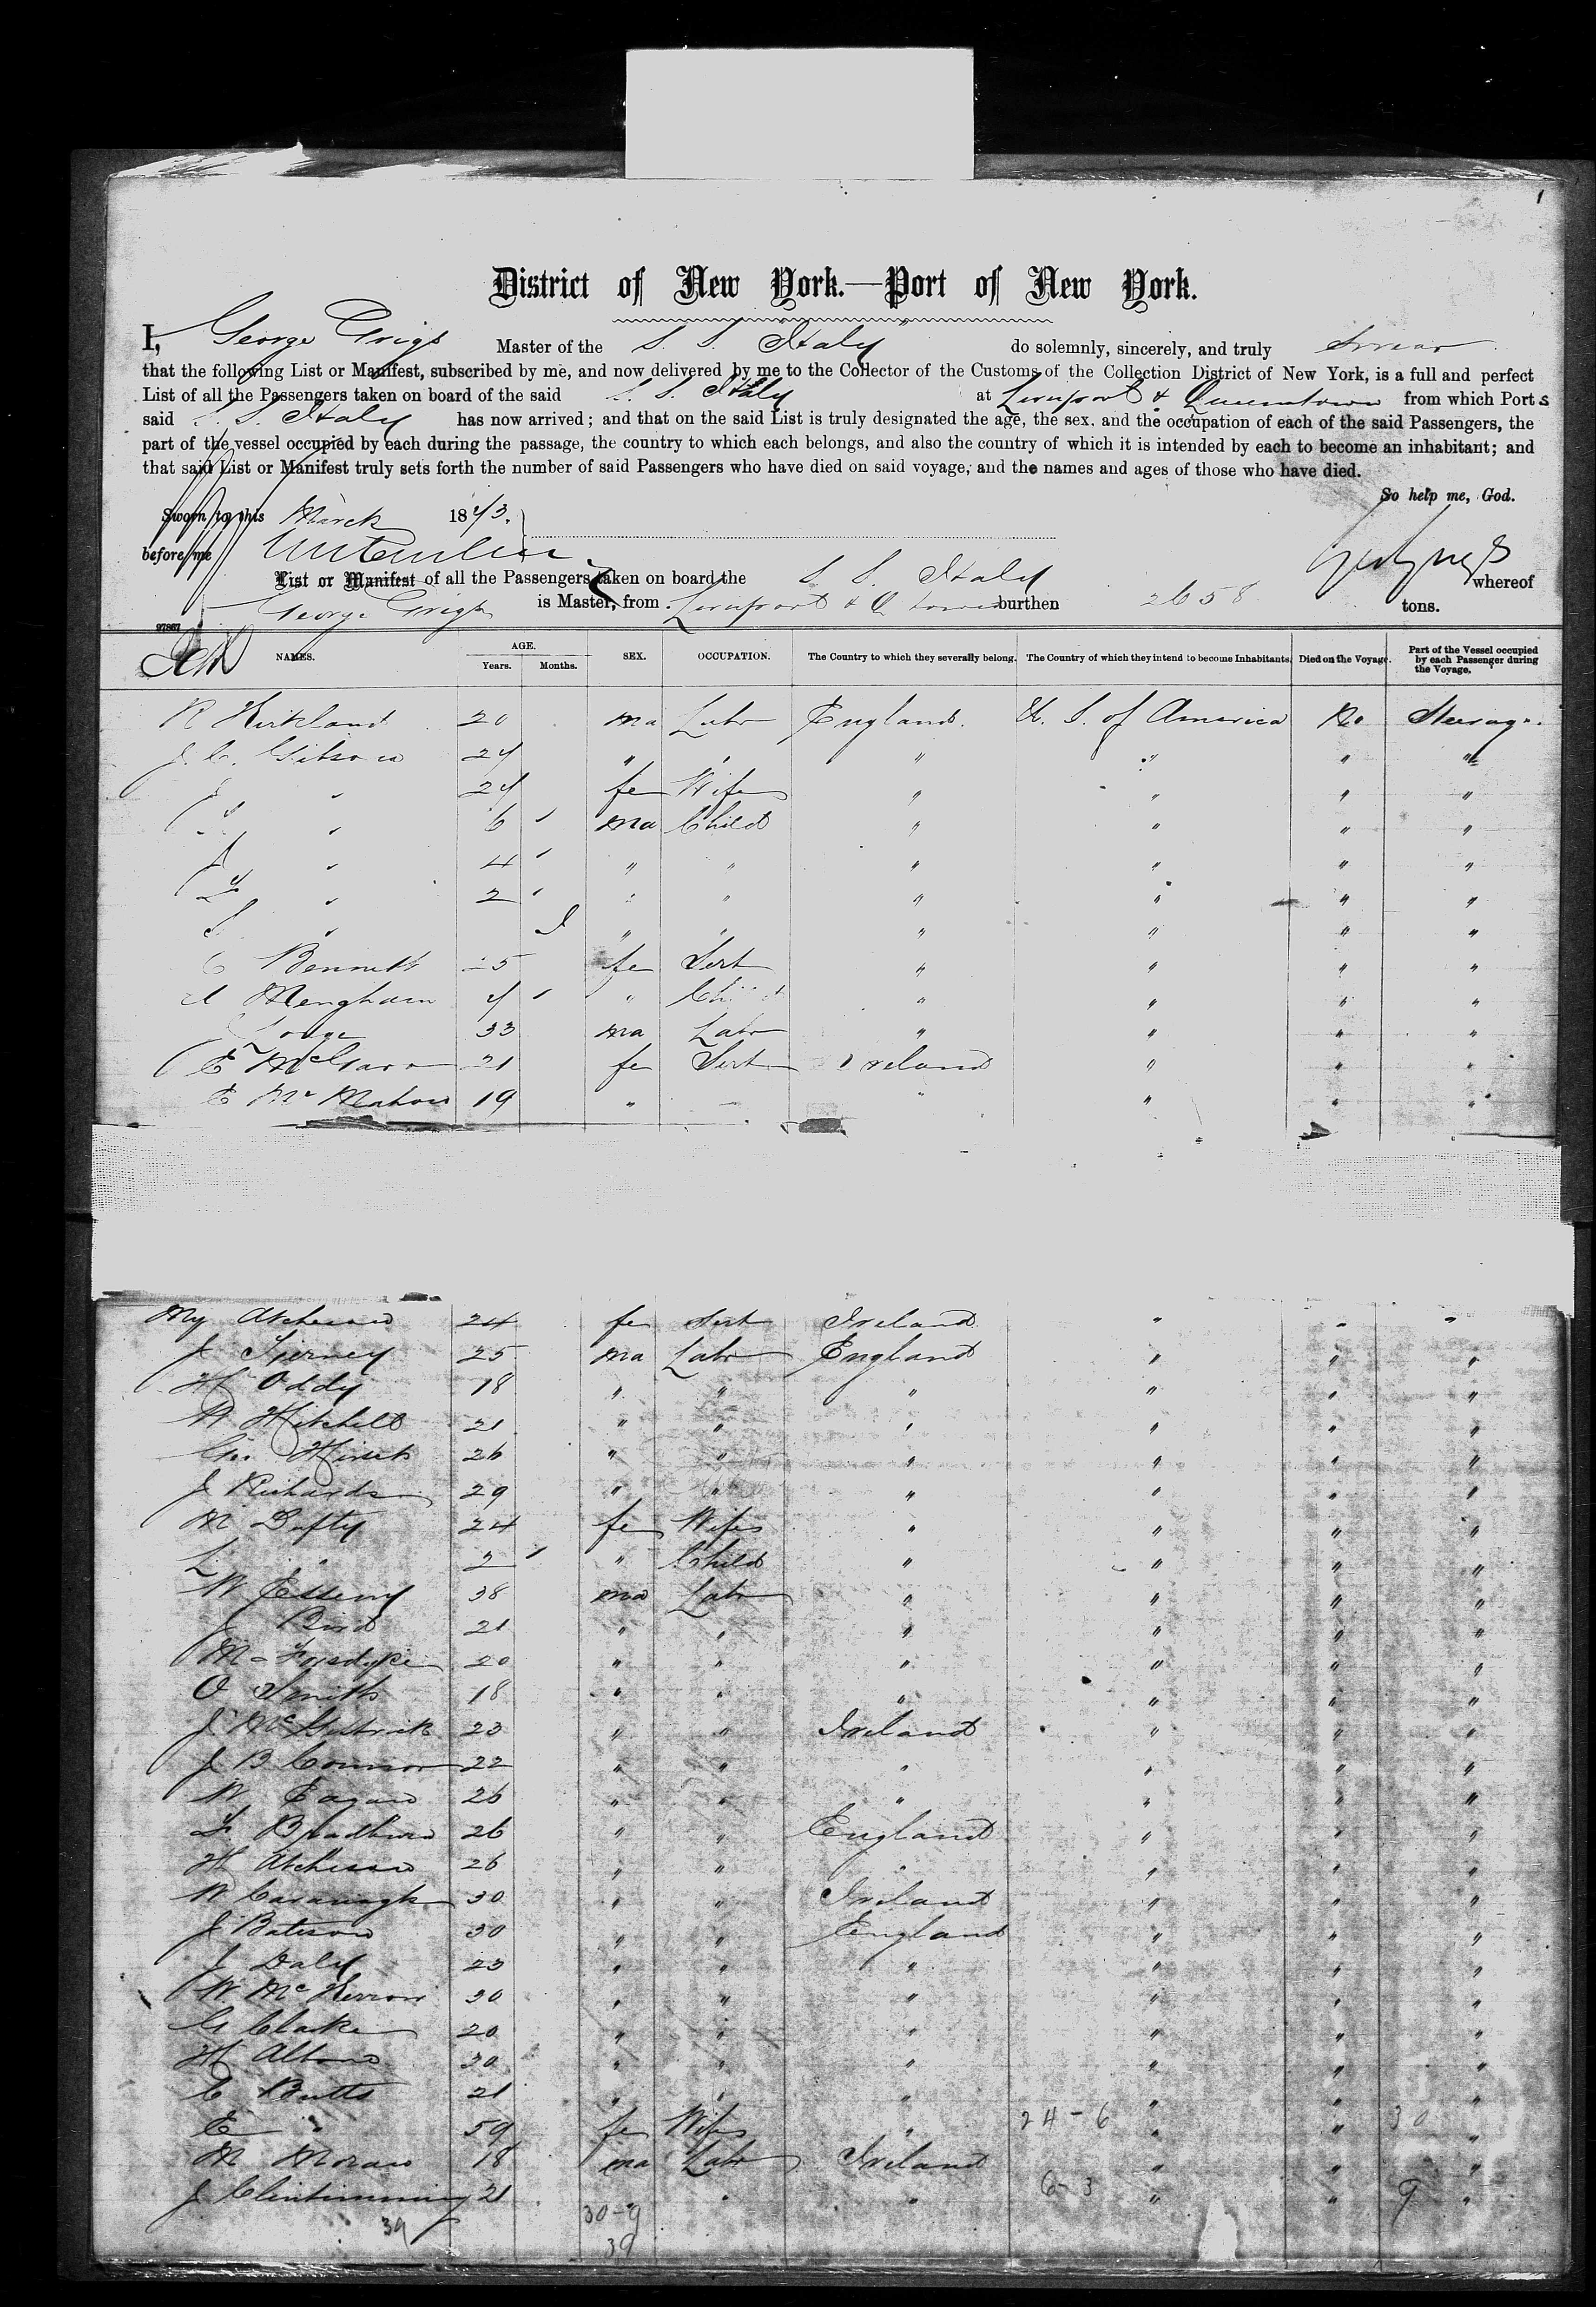 1
District of New York.—Port of New York.
I, George Grigs Master of the S. S. Italy do solemnly, sincerely, and truly swear
that the following List or Manifest, subscribed by me, and now delivered by me to the Collector of the Customs of the Collection District of New York, is a full and perfect
List of all the Passengers taken on board of the said S. S. Italy at Liverpool & Queenstown from which Ports
said S. S. Italy has now arrived; and that on the said List is truly designated the age, the sex. and the occupation of each of the said Passengers, the
part of the vessel occupied by each during the passage, the country to which each belongs, and also the country of which it is intended by each to become an inhabitant; and
that said List or Manifest truly sets forth the number of said Passengers who have died on said voyage, and the names and ages of those who have died.
So help me, God.
Sworn to this March 1873.
before me
List or Manifest of all the Passengers taken on board the S. S. Italy whereof
George Grigs is Master, from Liverpool & Q town burthen 2658 tons.
97867
NAMES. AGE. Years. Months. SEX. OCCUPATION. The Country to which they severally belong. The Country of which they intend to become Inhabitants. Died on the Voyage. Part of the Vessel occupied by each Passenger during the Voyage.
R Kirkland 20 ma Labr England. U. S. of America No Steerage.
J. C. Gibson 27 " " " " " "
" 27 fe Wife " " " "
" 6 ma Child " " " "
J " 4 " " " " " "
F " 2 " " " " " "
S " " " " " " "
C Bennett 25 fe Servt " " " "
Mengham 7 " Child " " " "
Lodge 33 ma Labr " " " "
E McGara 21 fe Servt Ireland " " "
E McMahon 19 " " " " "
My Atcheson 24 fe Servt Ireland " " "
J Tierney 25 ma Labr England " " "
H Oddy 18 " " " " " "
W Mitchell 21 " " " " " "
Geo Hirst 26 " " " " " "
J Richards 29 " " " " " "
M Dufty 24 fe Wife " " " "
L " 2 " Child " " " "
W Jessemy 38 ma Labr " " " "
J Bird 21 " " " " " "
M Fosdyke 20 " " " " " "
O Smith 18 " " " " " "
J McGustrick 23 " " Ireland " " "
J B Connor 22 " " " " " "
W Eagan 26 " " " " " "
F Bradburn 26 " " England " " "
H Atcheson 26 " " " " " "
W Cavanagh 30 " " Ireland " " "
J Bateson 30 " " England " " "
J Daly 23 " " " " " "
W McKerron 30 " " " " " "
G Clarke 20 " " " " " "
H Altons 30 " " " " " "
C Butts 21 " " " " " "
E " 59 fe Wife " 24-6 " " 30 "
M Moran 18 ma Labr Ireland " " "
J Clintimming 21 " " " 6-3 " " 9 "
39 30-9
39